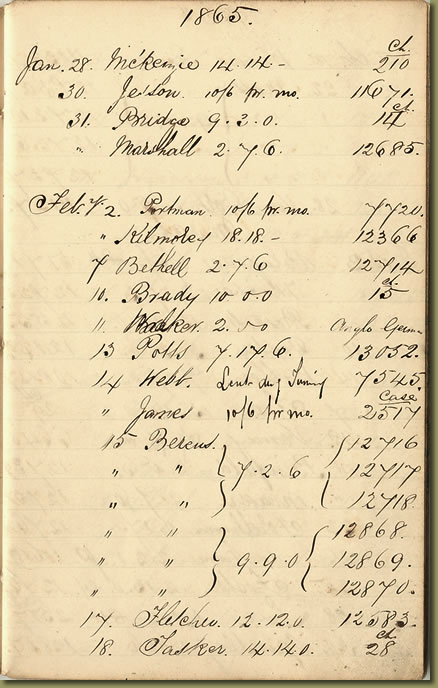 1865.
Jan. 28. McKenzie 14.14.- Ch. 210
30. Jesson. 10/6 pr. mo. 11671.
31. Bridge 9.3.0. Ch. 14
" Marshall 2.7.6. 12685.
Feb. 2. Portman. 10/6 pr. mo. 7720.
" Kilmorey 18.18.- 12366
7 Bethell 2.7.6 12714
10. Brady 10.0.0 Ch. 15
11. 2. Anglo German
13 Potts 7.17.6. 13052.
14 Webb. Tuning 7545.
" James 10/6 pr. mo. Case 2517
15 12716
" " 7.2.6 12717
" " 12718
" " 12868.
" " 9.9.0 12869.
" " 12870.
17. Fletcher. 12.12.0. 12583.
18. Tasker. 14.14.0. Ch. 28